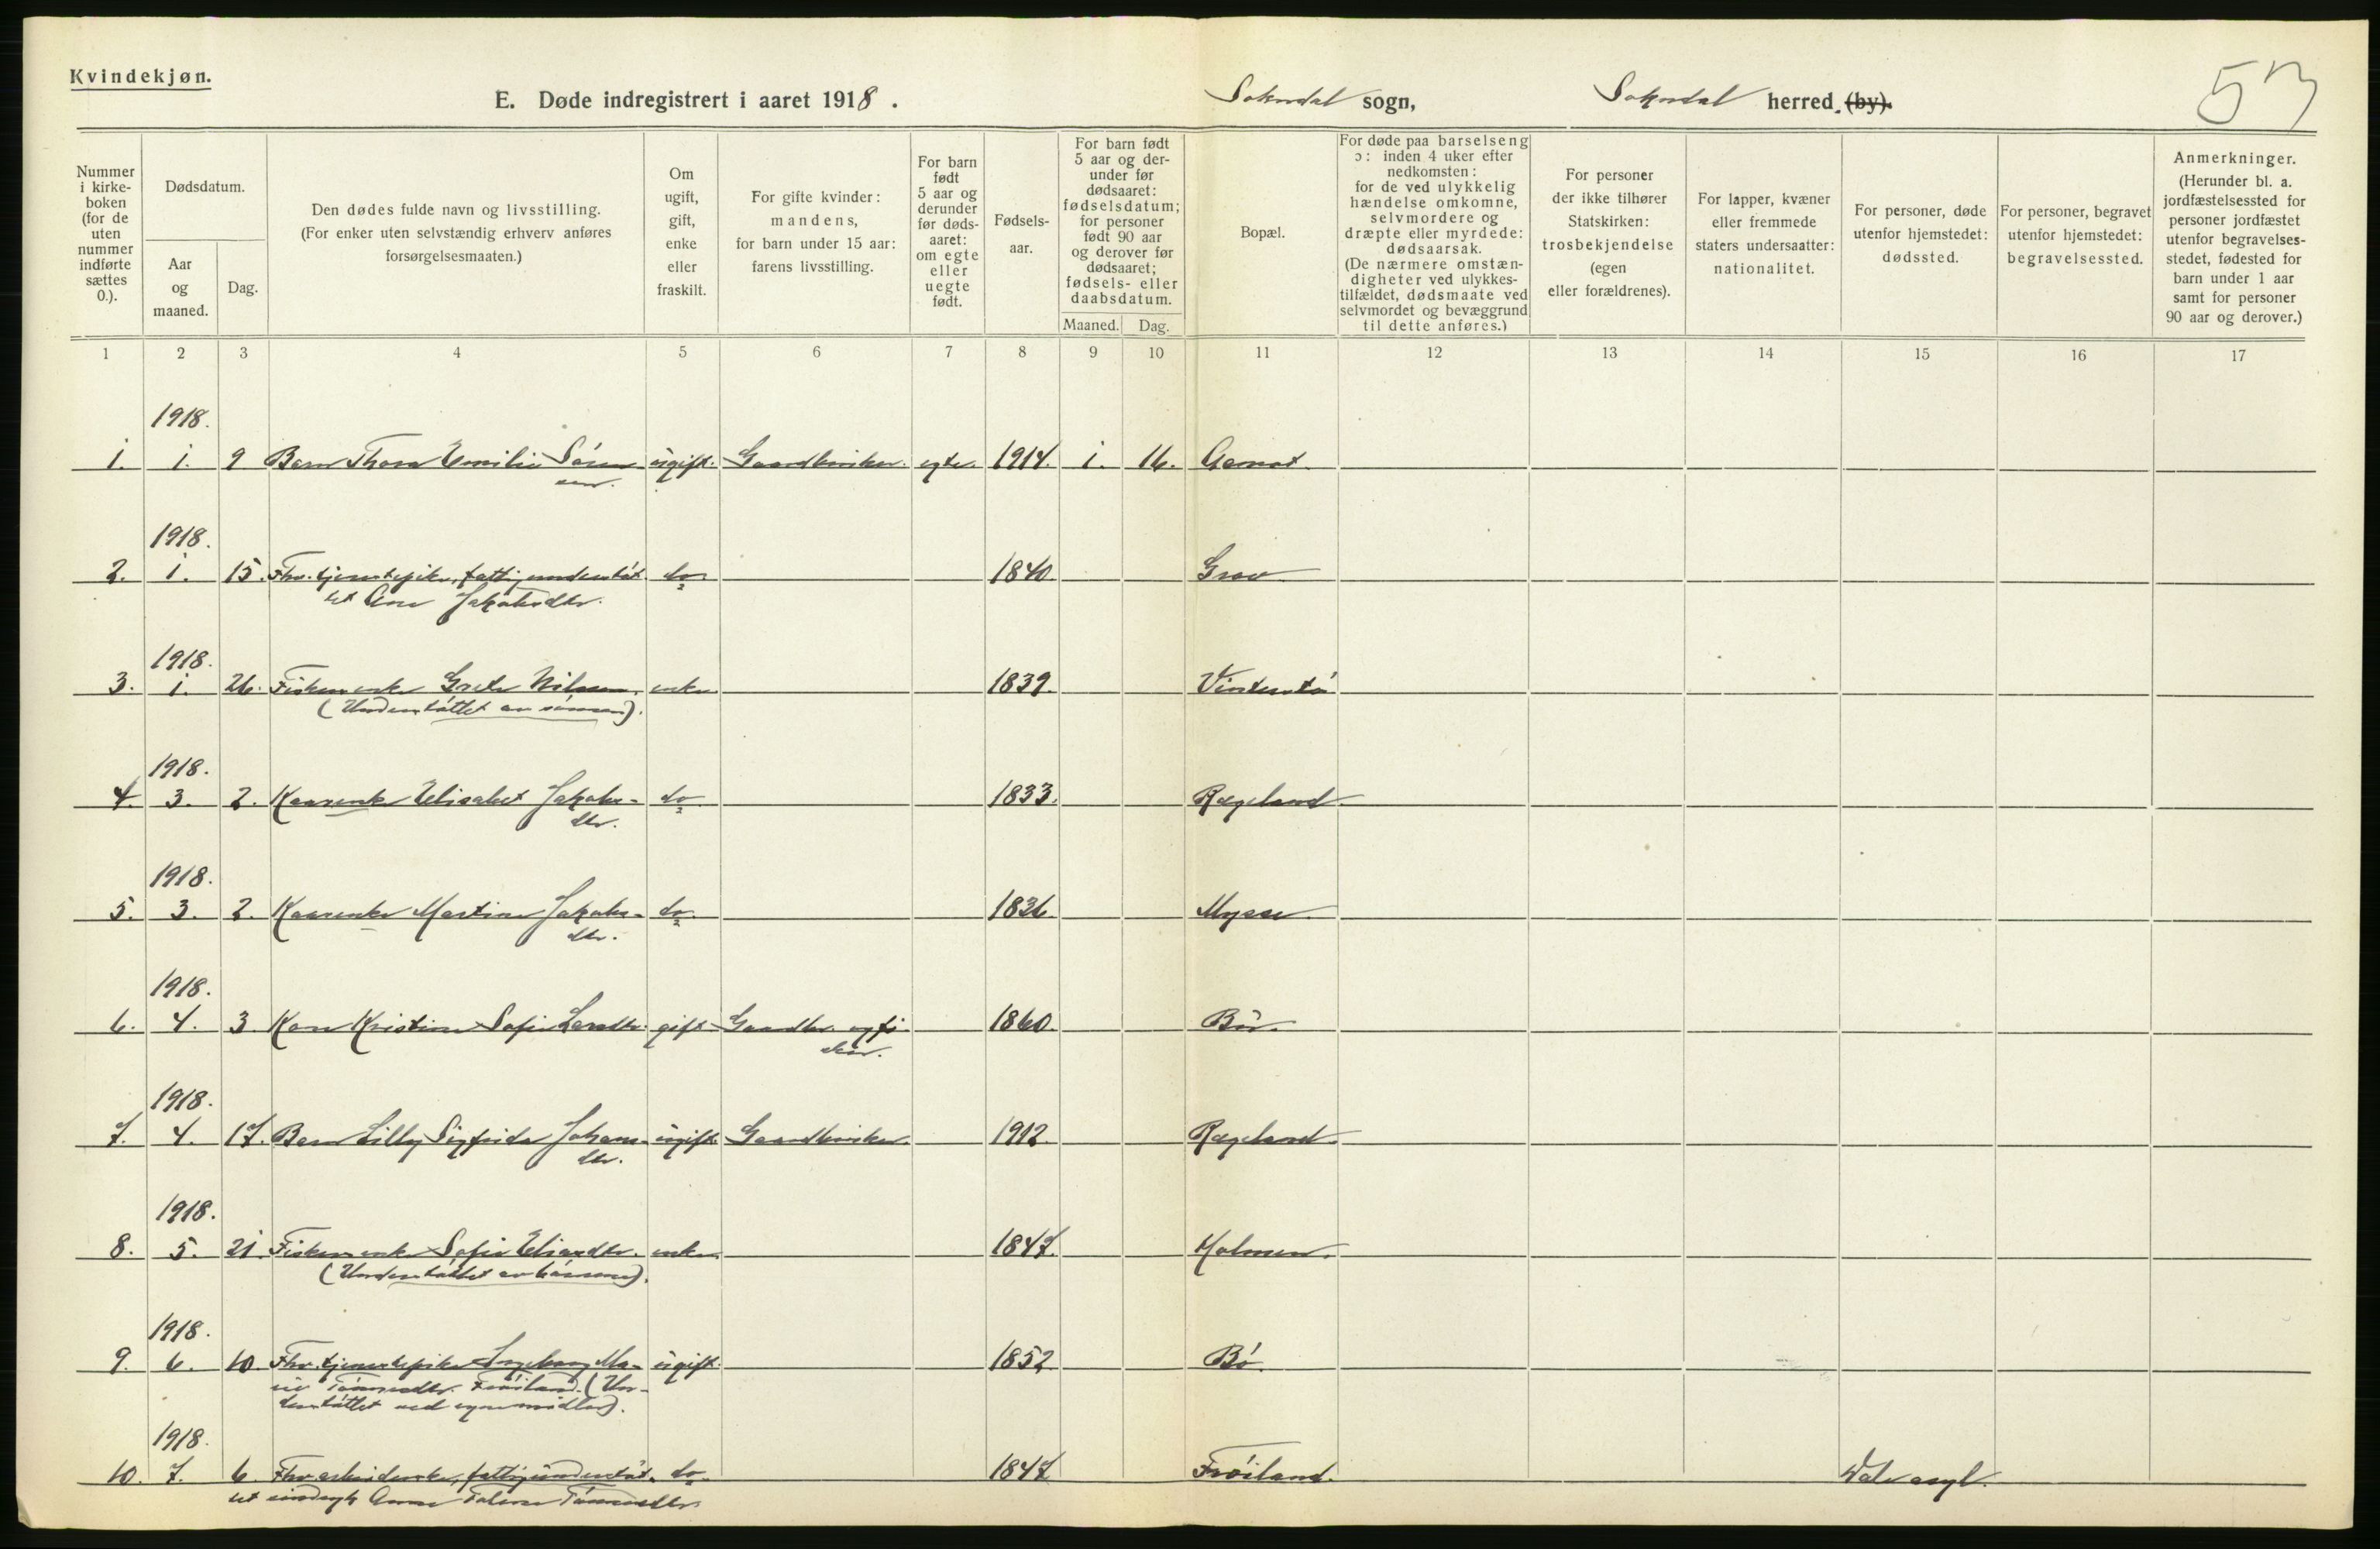 Kvindekjøn.
E. Døde indregistrert i aaret 1918.
Sokndal sogn,
Sokndal herred. (by).
53
Nummer i kirke-boken (for de uten nummer indførte sættes 0.).
Dødsdatum.
Aar og maaned.
Dag.
Den dødes fulde navn og livsstilling.
(For enker uten selvstændig erhverv anføres forsørgelsesmaaten.)
Om ugift, gift, enke eller fraskilt.
For gifte kvinder: mandens, for barn under 15 aar: farens livsstilling.
For barn født 5 aar og derunder før døds-aaret: om egte eller uegte født.
Fødsels-aar.
For barn født 5 aar og der-under før dødsaaret: fødselsdatum; for personer født 90 aar og derover før dødsaaret; fødsels- eller daabsdatum.
Maaned.
Dag.
Bopæl.
For døde paa barselseng ɔ: inden 4 uker efter nedkomsten: for de ved ulykkelig hændelse omkomne, selvmordere og dræpte eller myrdede: dødsaarsak. (De nærmere omstæn-digheter ved ulykkes-tilfældet, dødsmaate ved selvmordet og bevæggrund til dette anføres.)
For personer der ikke tilhører Statskirken: trosbekjendelse (egen eller forældrenes).
For lapper, kvæner eller fremmede staters undersaatter: nationalitet.
For personer, døde utenfor hjemstedet: dødssted.
For personer, begravet utenfor hjemstedet: begravelsessted.
Anmerkninger. (Herunder bl. a. jordfæstelsessted for personer jordfæstet utenfor begravelses-stedet, fødested for barn under 1 aar samt for personer 90 aar og derover.)
1 2 3 4 5 6 7 8 9 10 11 12 13 14 15 16 17
1918.
1. 1. 9 Barn Thora Emilie Søren- ugift. Gaardbruker. egte. 1914. 1. 16.
sen.
1918.
2. 1. 15. Fhv. tjenestepike, fattigunderstøt- do. 1840. Grov
tet Ane Jakobsdtr.
1918.
3. 1. 26. Fiskerenke Grete Nilssen, enke 1839.
(Understøttet av sønnen).
1918.
4. 3. 2. Kaarenke Elisabet Jakobs- do 1833. Rægeland
dtr.
1918.
5. 3. 2. Kaarenke Martine Jakobs- do. 1836. Mysse
dtr.
1918.
6. 4. 3 Kone Kristine Sofie Larsdtr. gift Gaardbr. og fi- 1860. Bø.
sker.
1918.
7. 4. 17. Barn Lilly Sigfrida Johans- ugift. Gaardbruker. 1912. Rægeland
dtr.
1918.
8. 5. 21. Fiskerenke Sofie Eliasdtr. enke 1847. Holmen.
(Understøttet av sønnene).
1918.
9. 6. 10. Fhv. tjenestepike Ingeborg Ma- ugift. 1852. Bø.
rie Tønnesdtr. Frøiland. (Un-
derstøttet ved egne midler).
1918.
10. 7. 6. Fhv. arbeiderske, fattigunderstøt- do. 1847 Frøiland. Dale asyl.
tet sindssyk Anne Tønnesdtr.